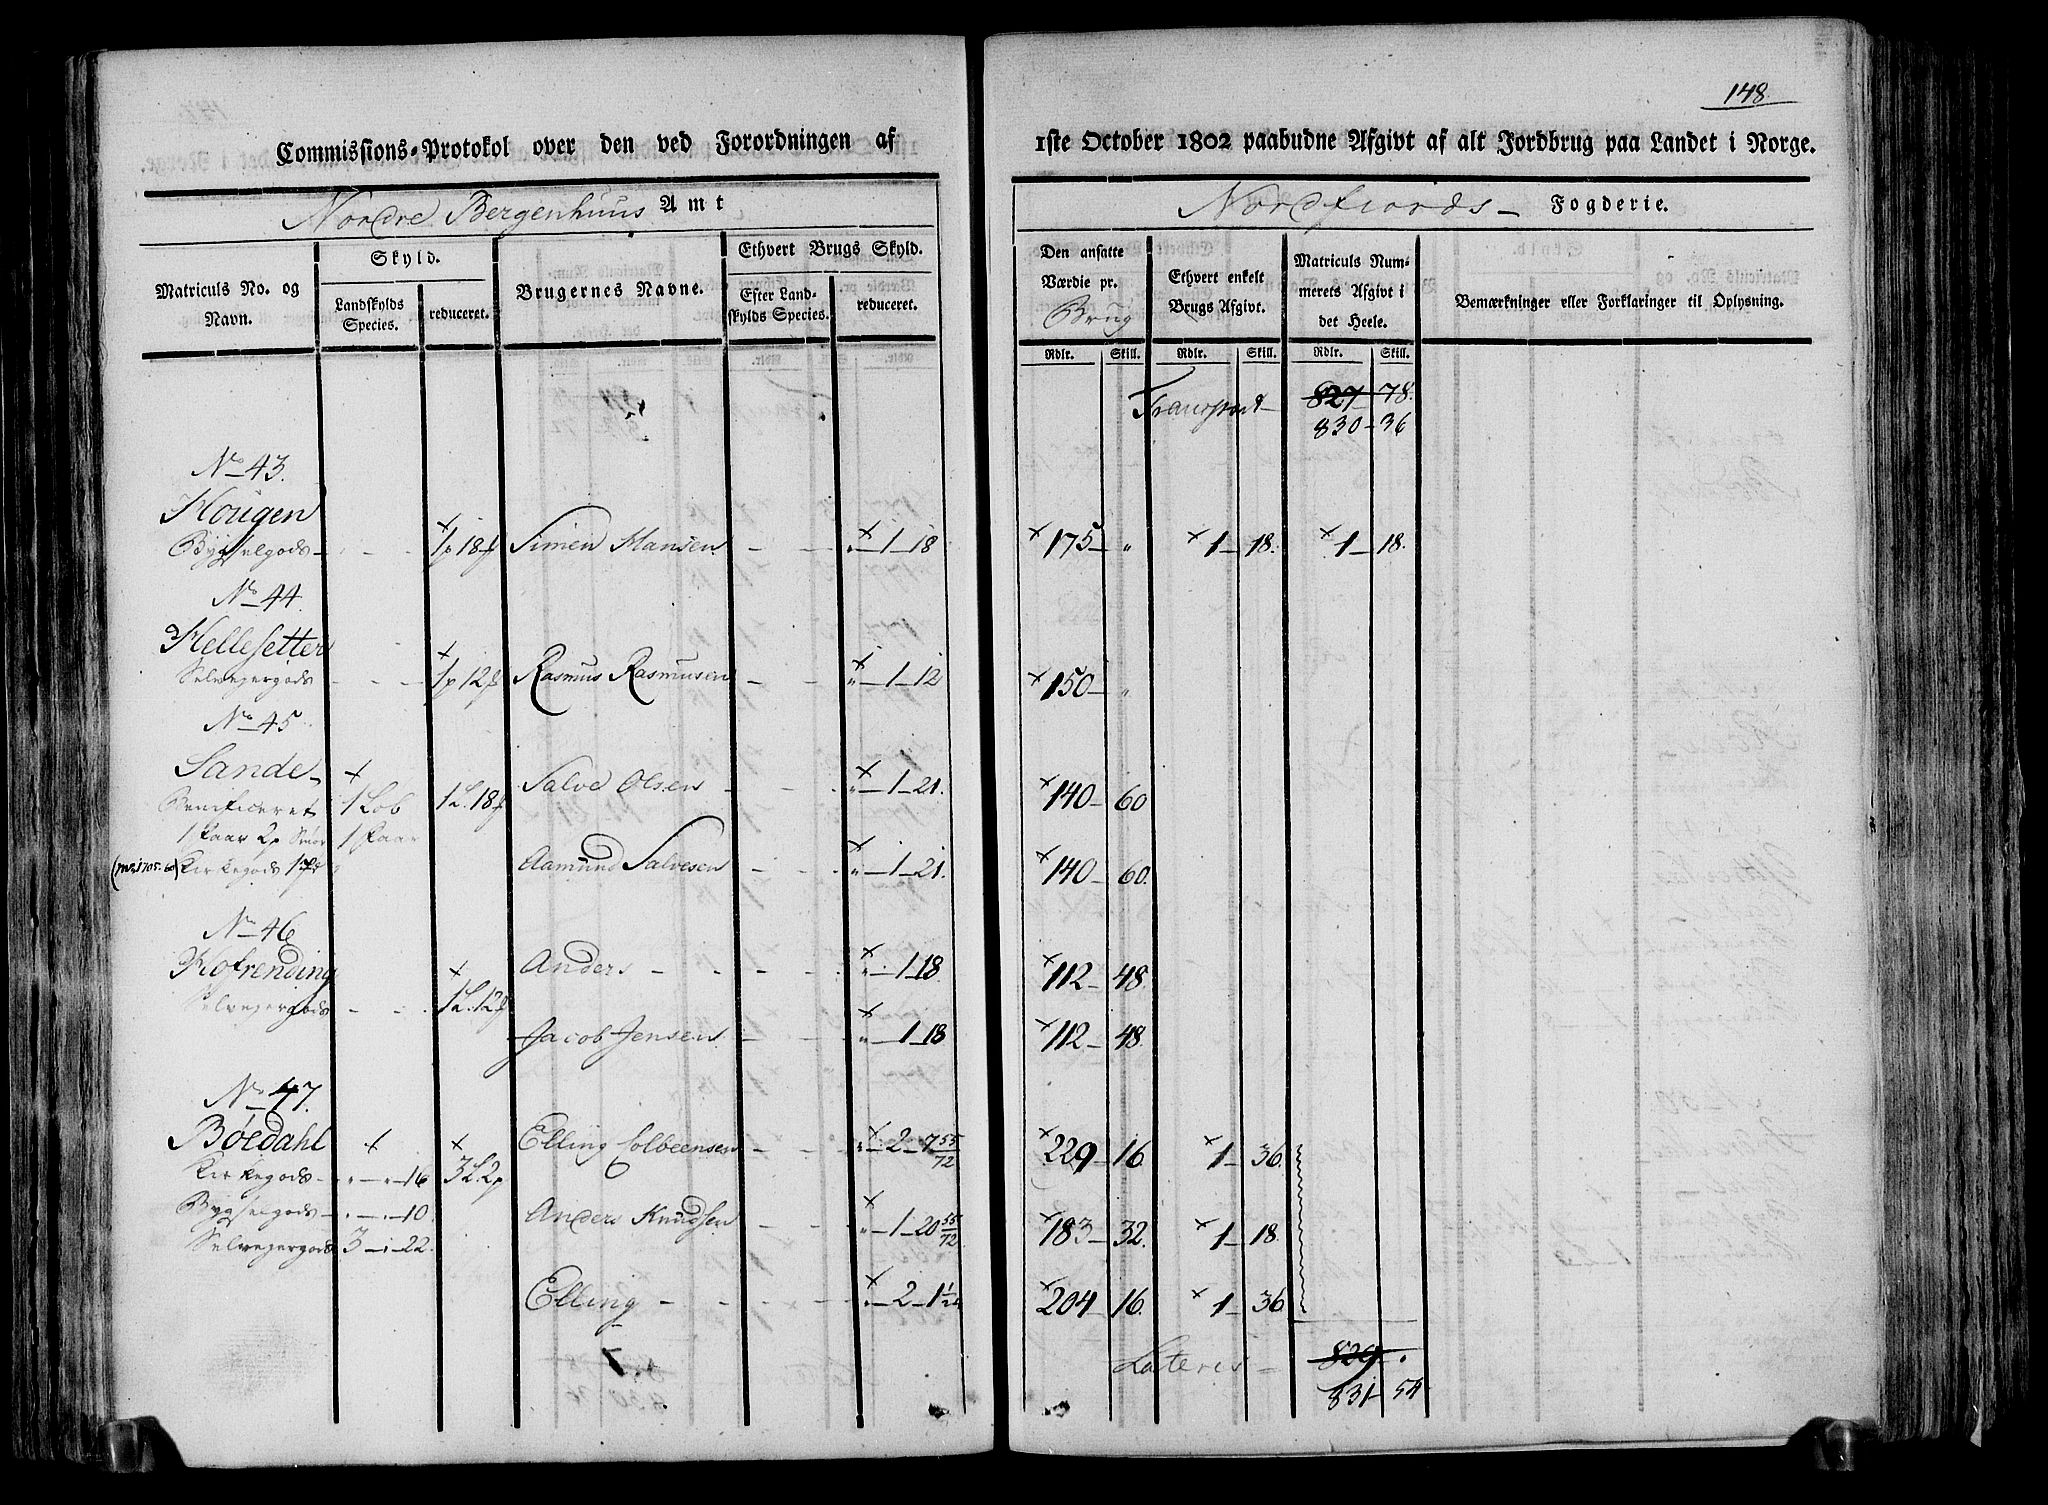 148.
Commissions-Protokol over den ved Forordningen af
1ste October 1802 paabudne Afgivt af alt Jordbrug paa Landet i Norge.
Nordre Bergenhuus Amt
Nordfiords Fogderie.
Matriculs No. og Navn.
Skyld.
Landskylds Species.
reduceret.
Brugernes Navne.
Ethvert Brugs Skyld.
Efter Landskylds Species.
reduceret.
Den ansatte Værdie pr. Brug
Ethvert enkelt Brugs Afgivt.
Matriculs Nummerets Afgivt i det Heele.
Bemærkninger eller Forklaringer til Oplysning.
Rdlr. Skill. Rdlr. Skill. Rdlr. Skill.
Transport 827 78.
830 36
No 43.
Hougen
Bygselgods - - - 1p 18 Simen Hansen - - " 1 18 175 " 1 18. 1 18.
No 44.
Hellesetter
Selveyergods - - - 1p 12 Rasmus Rasmusen - - " 1 12 150 "
No 45
Sande
Beneficeret 1 Lob 1L. 18 Salve Olsen - - " 1 21. 140 60
1 Faar 2p Smør 1 Faar
Kirkegods Aamund Salvesen - - " 1 21. 140 60.
No 46
Anders - - - " 1 18. 112 48.
Selveyergods - - 1L. 12
Jacob Jensen - - " 1 18 112 48.
No 47.
Böedahl Elling Colbeensen - - " 2 7 55/72 229 16. 1 36.
Kirkegods " " 16 3L. 2p
Bygselgods " " 10. Anders Knudsen - - " 1 20 55/72 183 32. 1 18.
Selveyergods 3 1 22.
Elling - - - " 2 1 204 16. 1 36.
Lateris 829 .
831 54